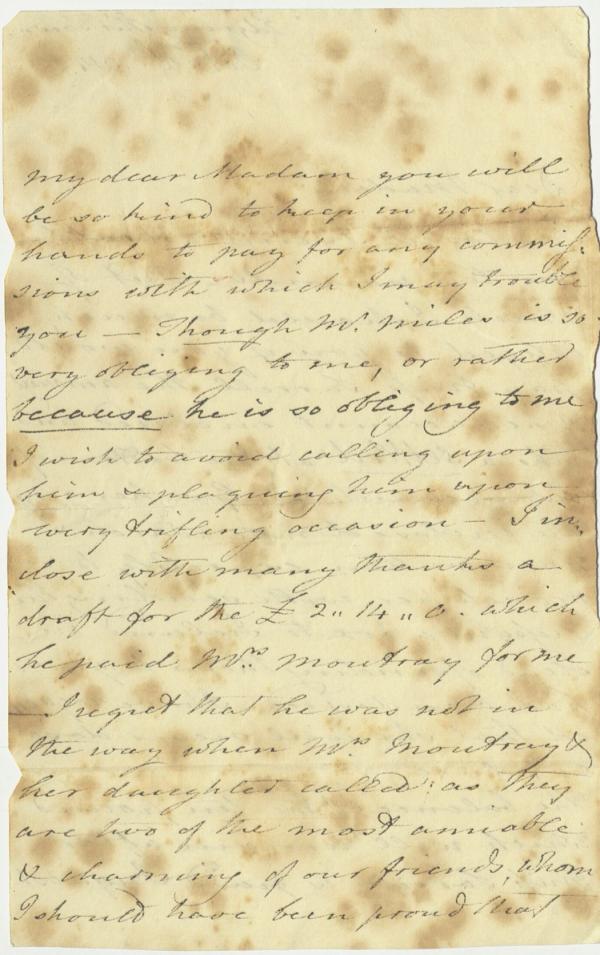 my dear Madam you will
be so kind to keep in your
hands to pay for any commis-
sions with which I may trouble
you — Though Mr. Miles is so
very obliging to me, or rather
because he is so obliging to me
I wish to avoid calling upon
him & plaguing him upon
every trifling occasion — I in-
close with many thanks a
draft for the £ 2 " 14 " 0 . which
he paid Mrs. Moutray for me
— I regret that he was not in
the way when Mrs Moutray &
her daughter called : as they
are two of the most amiable
& charming of our friends, whom
I should have been proud that